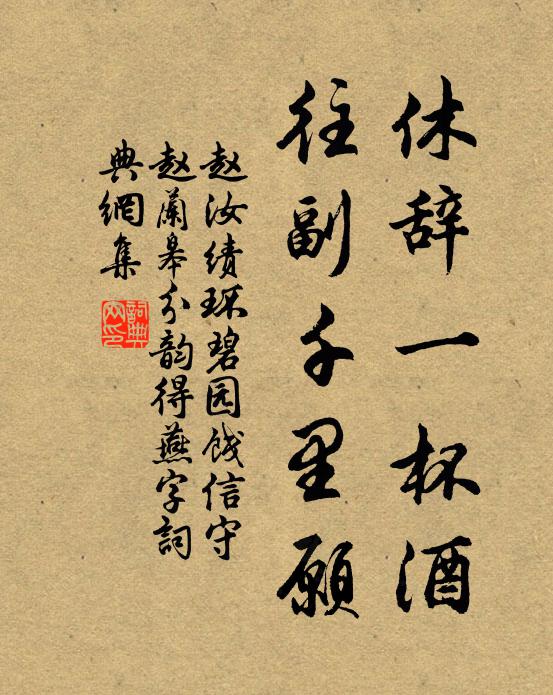 休辞一杯酒
往副千里愿
赵汝绩环碧园饯信守
赵蘭皋分韵得燕字詞
典網集
詞典
网印